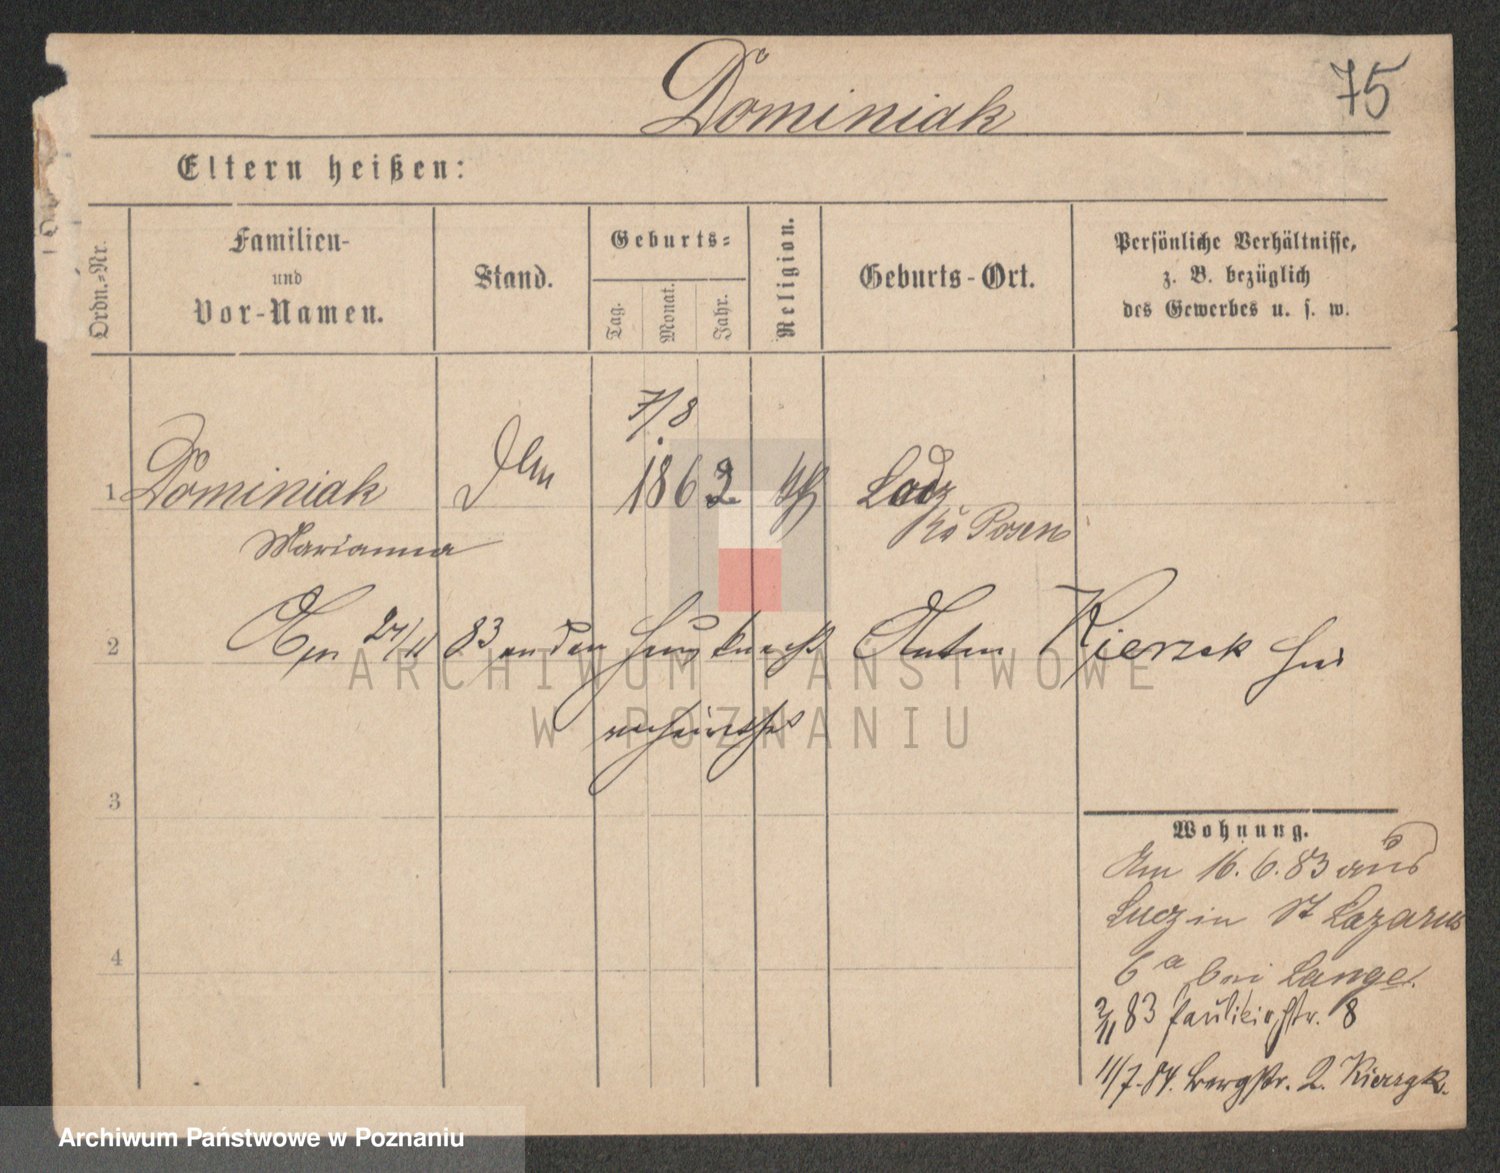 Dominiak
75
Eltern heißen:
Ordn.-Nr.
Familien-
und
Vor-Namen.
Stand.
Geburts-
Tag.
Monat.
Jahr.
Religion.
Geburts-Ort.
Persönliche Verhältnisse,
z. B. bezüglich
des Gewerbes u. s. w.
7/8
1 Dominiak 1862 Lodz
Marianna Posen
2 83 an den Hausknecht Anton Kierzek hier
verheirathet
3
4
Wohnung.
Am 16.6.83 aus
in St Lazarus
6a bei Lange.
2/11 83 Paulikirchstr. 8
11/7.84. Bergstr. 2. Kierzek.
ARCHIWUM PAŃSTWOWE
W POZNANIU
Archiwum Państwowe w Poznaniu